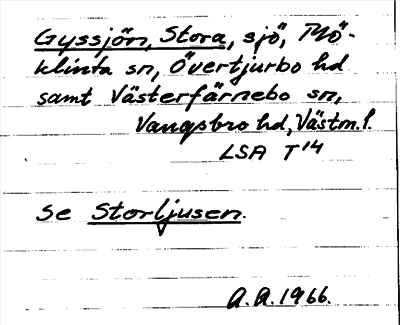 Gyssjön, Stora, sjö, Mö-
klinta sn, Övertjurbo hd
samt Västerfärnebo sn,
Vangsbro hd, Västm. l.
LSA T 14
Se Storljusen.
A. A. 1966.